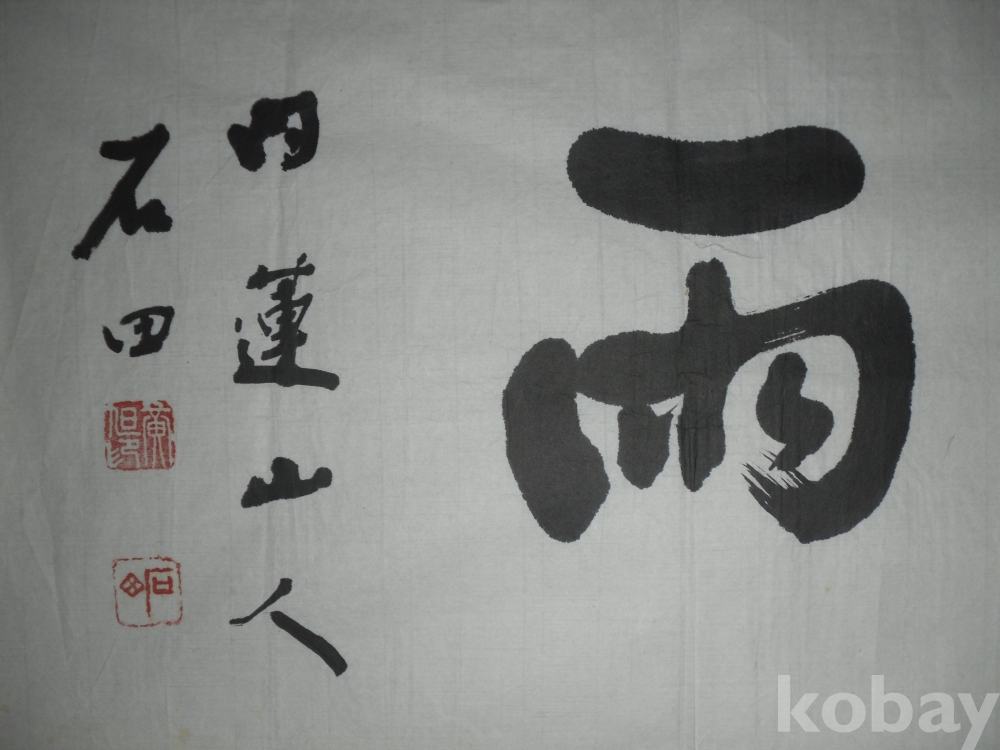 雨
蓮山人
石田
石田
kobay